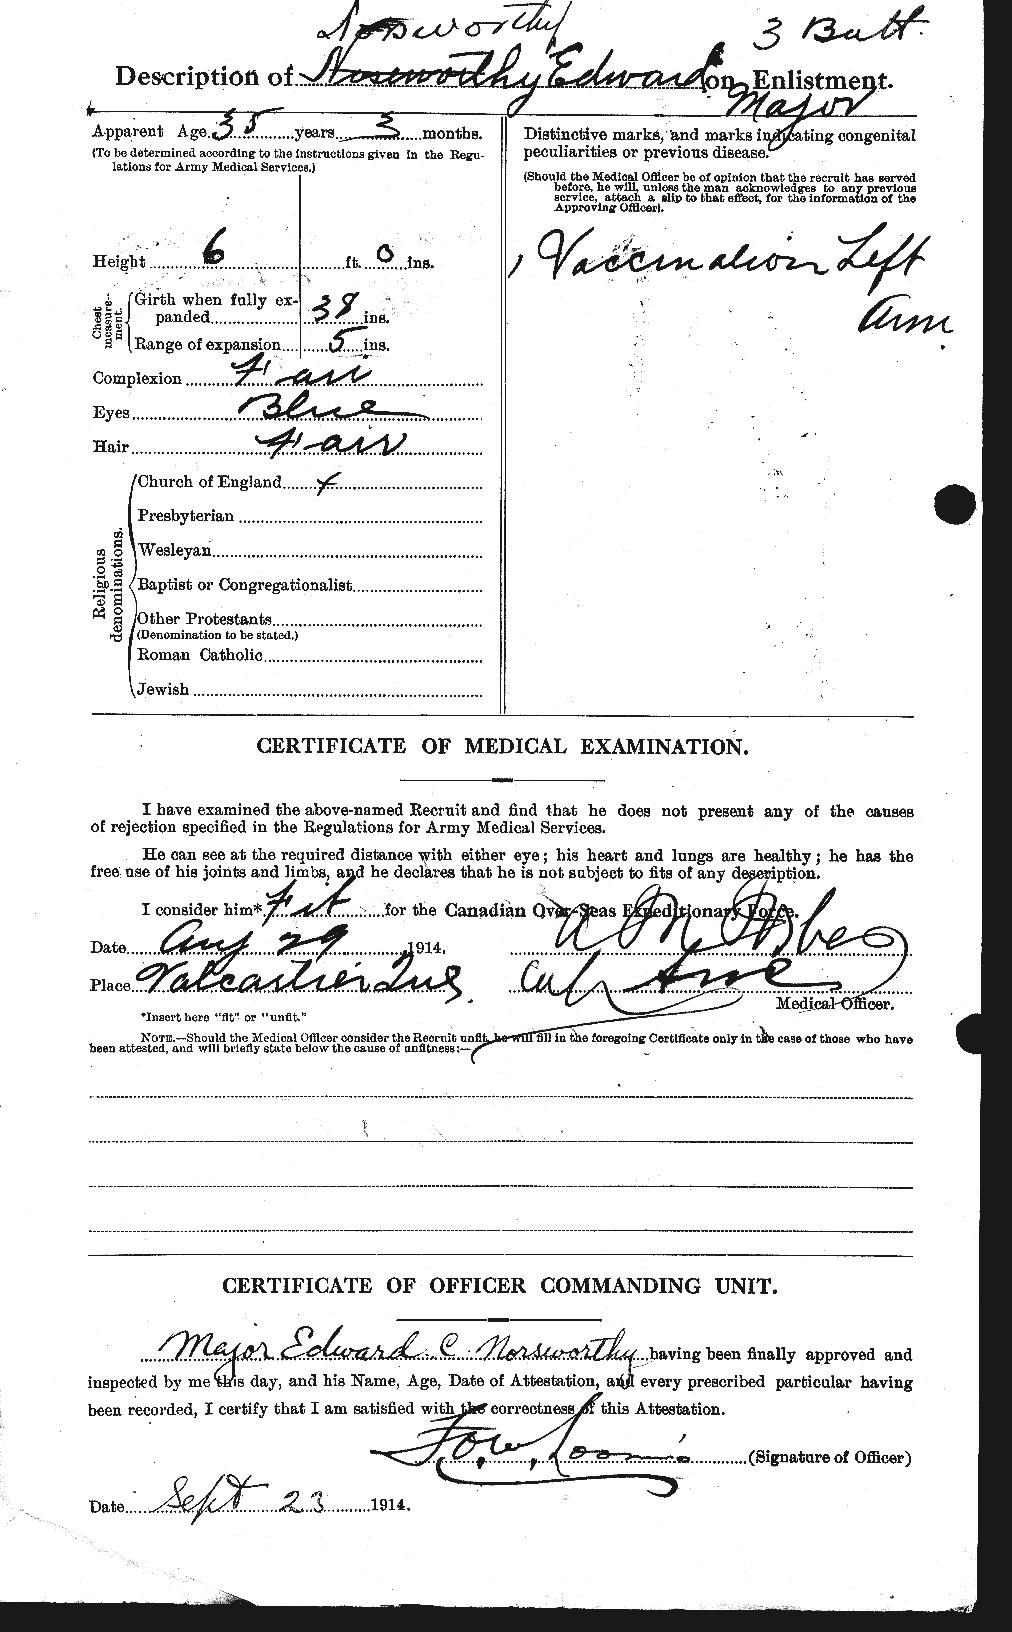 Norsworthy
3 Batt.
Description of Noseworthy Edward on Enlistment.
Major
Apparent Age 35 years 3 months.
(To be determined according to the instructions given in the Regu-
lations for Army Medical Services.)
Height 6 ft. 0 ins.
Chest measure-ment.
Girth when fully ex-
panded 38 ins.
Range of expansion 5 ins.
Complexion Fair
Eyes Blue
Hair Fair
Religious denominations.
Church of England x
Presbyterian
Wesleyan
Baptist or Congregationalist
Other Protestants
(Denomination to be stated.)
Roman Catholic
Jewish
Distinctive marks, and marks indicating congenital
peculiarities or previous disease.
(Should the Medical Officer be of opinion that the recruit has served
before, he will, unless the man acknowledges to any previous
service, attach a slip to that effect, for the information of the
Approving Officer).
1 Vaccination Left
Arm
CERTIFICATE OF MEDICAL EXAMINATION.
I have examined the above-named Recruit and find that he does not present any of the causes
of rejection specified in the Regulations for Army Medical Services.
He can see at the required distance with either eye; his heart and lungs are healthy; he has the
free use of his joints and limbs, and he declares that he is not subject to fits of any description.
I consider him* Fit for the Canadian Over-Seas Expeditionary Force.
Date Aug 29 1914.
Place Valcartier Que.
Medical Officer.
*Insert here "fit" or "unfit."
NOTE.—Should the Medical Officer consider the Recruit unfit, he will fill in the foregoing Certificate only in the case of those who have
been attested, and will briefly state below the cause of unfitness:—
CERTIFICATE OF OFFICER COMMANDING UNIT.
Major Edward C. Norsworthy having been finally approved and
inspected by me this day, and his Name, Age, Date of Attestation, and every prescribed particular having
been recorded, I certify that I am satisfied with the correctness of this Attestation.
F.O.W. Loomis (Signature of Officer)
Date Sept 23 1914.